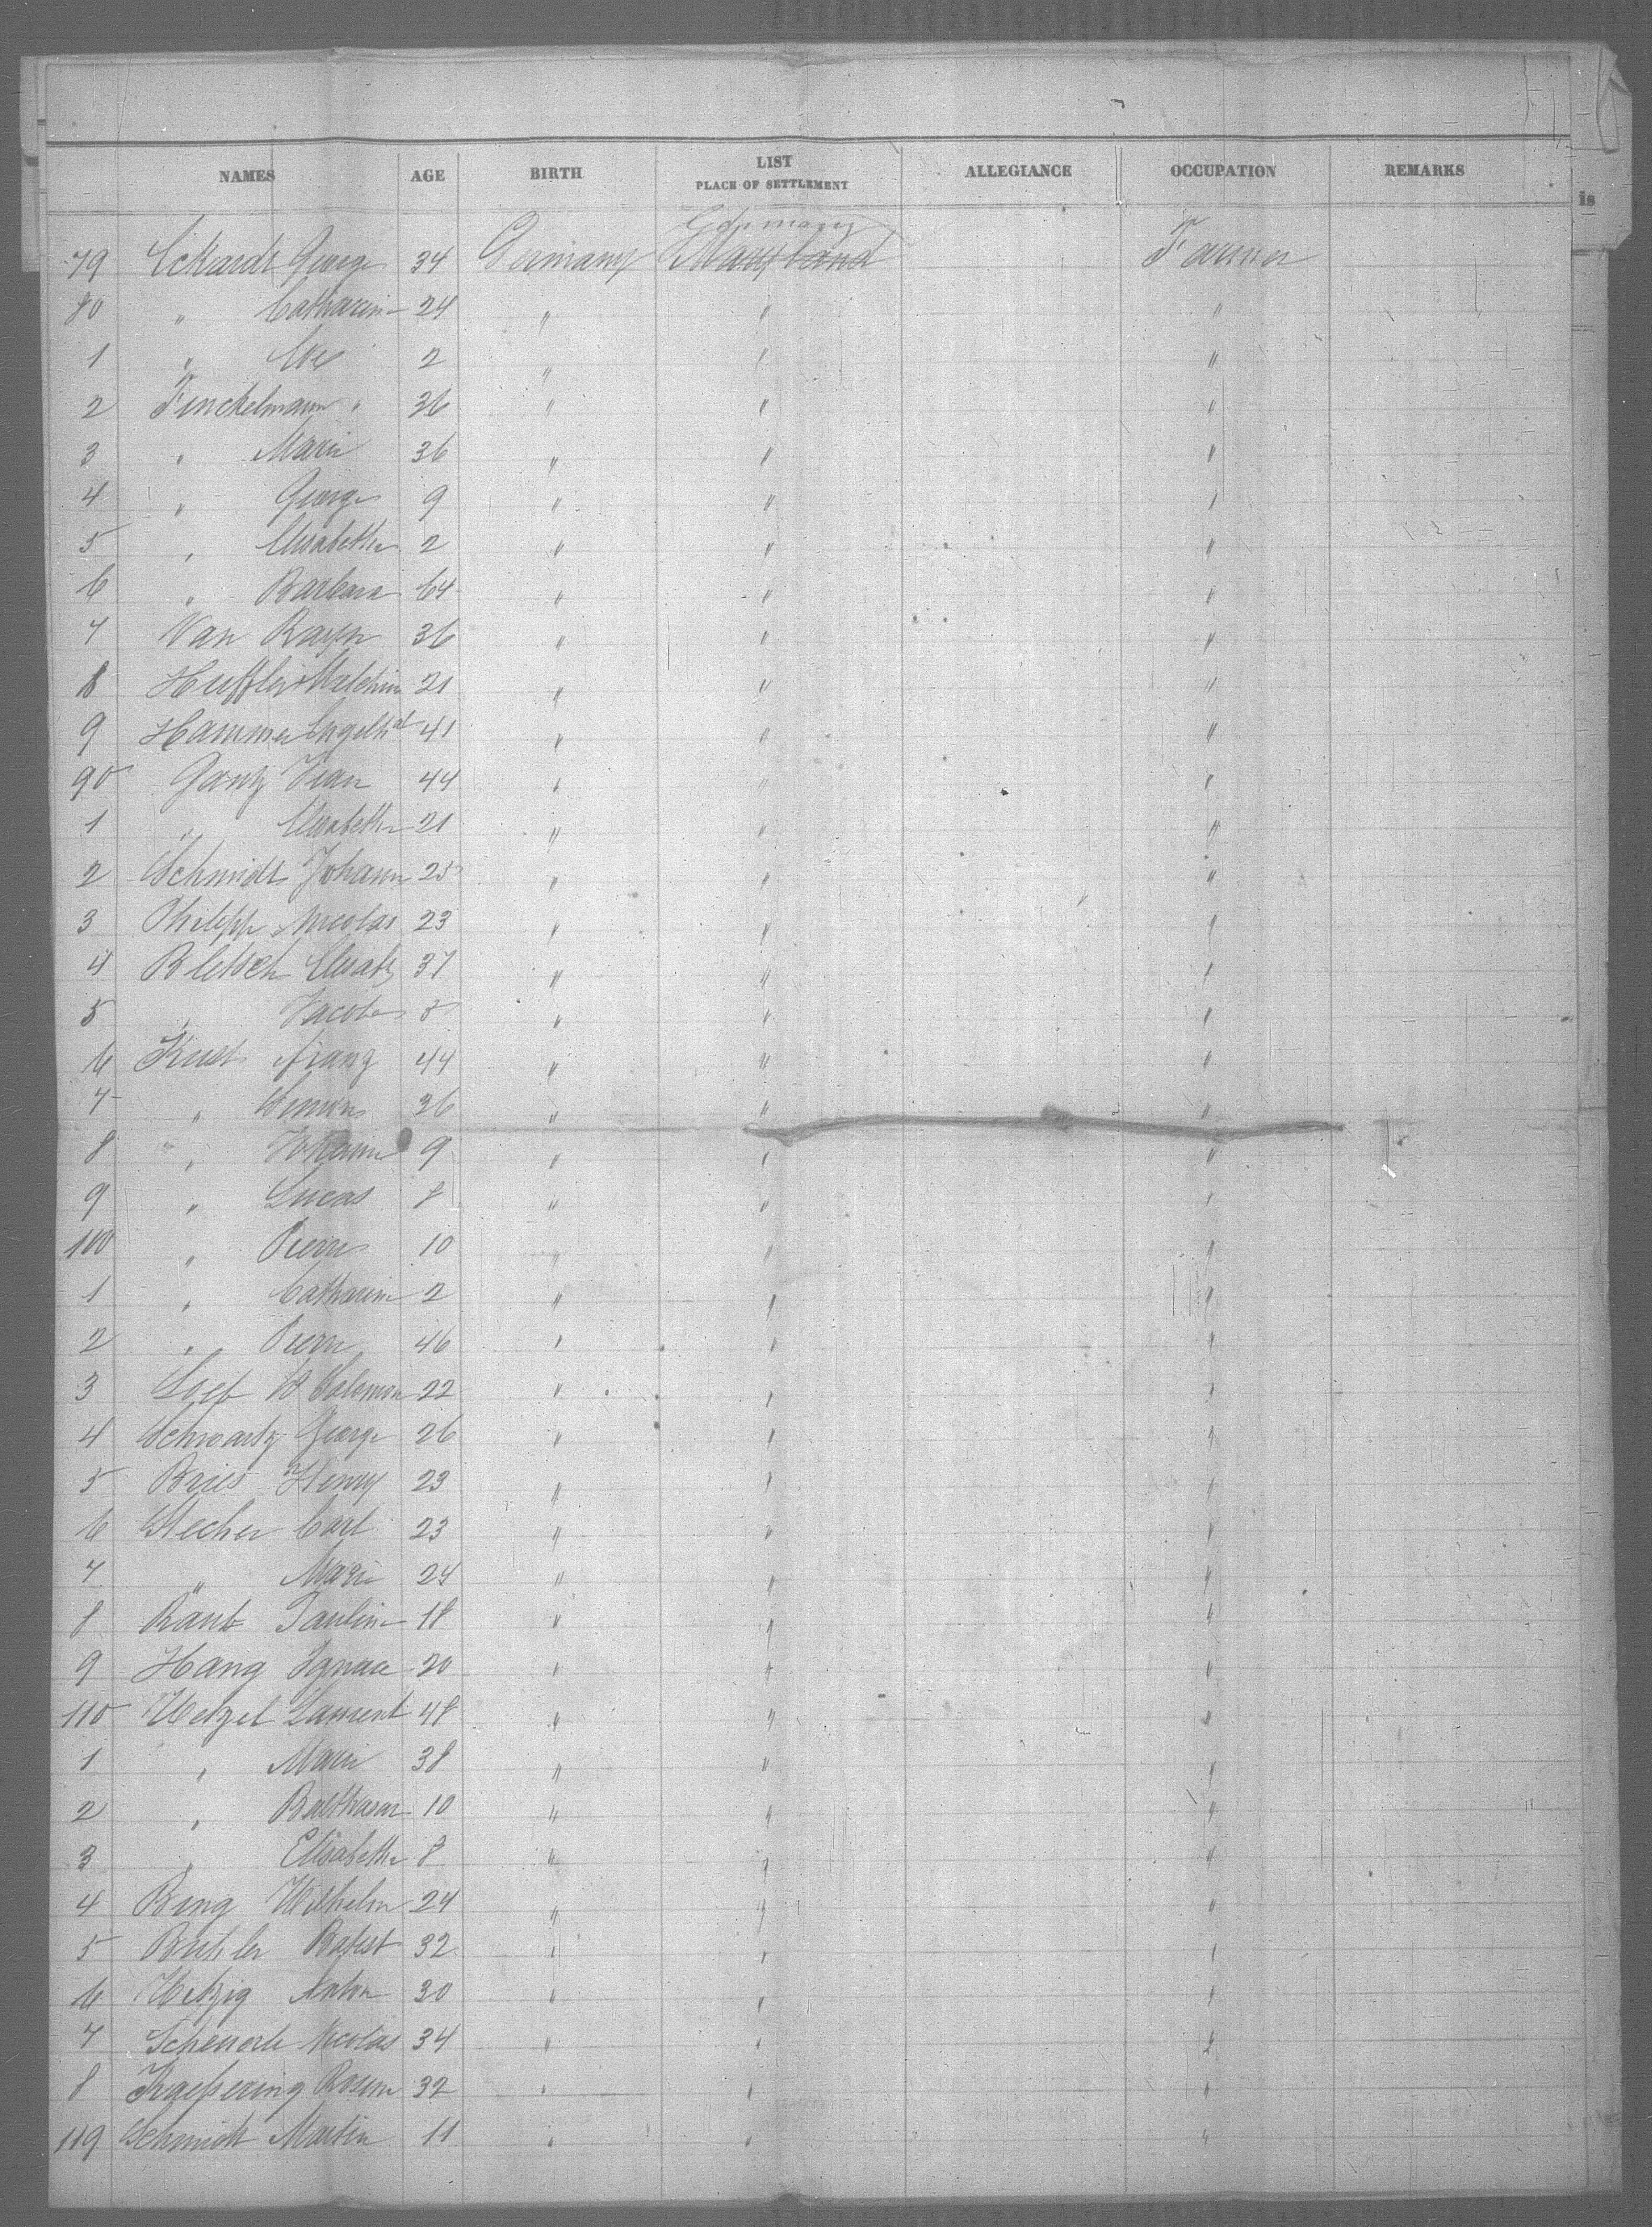 NAMES AGE BIRTH LIST PLACE OF SETTLEMENT ALLEGIANCE OCCUPATION REMARKS
is
Germany
79 Eckardt George 34 Germany Maryland Farmer
80 " Catharine 24 " " "
1 " Eve 2 " " "
2 Finckelmann " 36 " " "
3 " Marie 36 " " "
4 " George 9 " " "
5 " Elisabetha 2 " " "
6 " Barbara 64 " " "
7 Van 36 " " "
8 21 " " "
9 Hammer 41 " " "
90 Gantz Jean 44 " " "
1 " Elisabetha 21 " " "
2 Schmidt Johann 25 " " "
3 Philipp Nicolas 23 " " "
4 Bletsch Elisab 37 " " "
5 " Jacob " " "
6 Franz 44 " " "
7 " Simon 36 " " "
8 " Johann 9 " " "
9 " Lucas 8 " " "
100 " Pierre 10 " " "
1 " Catharine 2 " " "
2 " Pierre 46 " " "
3 Loeb B Salomon 22 " " "
4 Schwartz George 26 " " "
5 Bries Henry 23 " " "
6 Stecher Carl 23 " " "
7 " Marie 24 " " "
8 Raub Pauline 18 " " "
9 Hang Ignace 20 " " "
110 Wetzel Laurent 48 " " "
1 " Marie 38 " " "
2 " Balthasar 10 " " "
3 " Elisabetha 8 " " "
4 Bing Wilhelm 24 " " "
5 Buhler Batist 32 " " "
6 Anton 30 " " "
7 Nicolas 34 " " "
8 32 " " "
119 Schmidt Martin 11 " " "